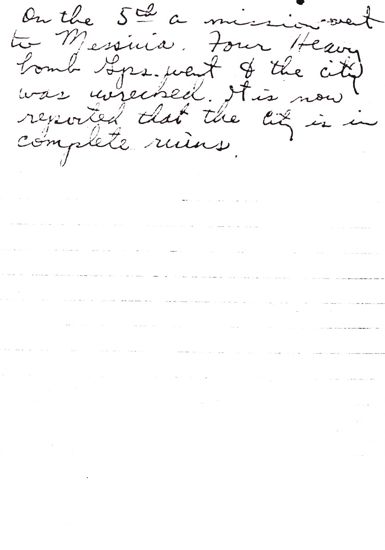 On the 5th a mission went
to Messinia. Four Heavy
bomb Gps. went & the city
was wrecked. It is now
reported that the city is in
complete ruins.